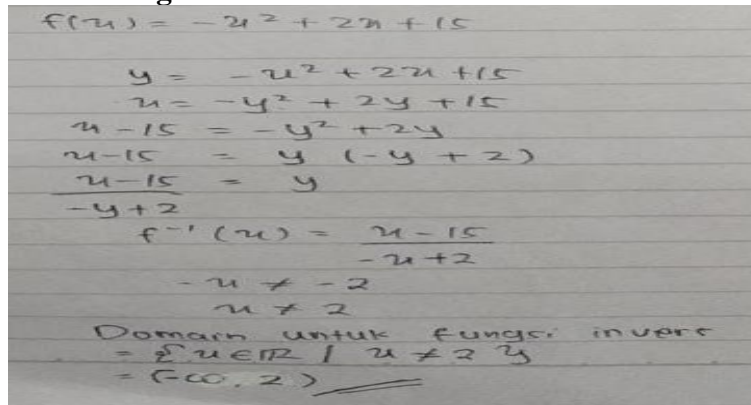 f(x) = -x² + 2x + 15
y = -x² + 2x + 15
x = -y² + 2y + 15
x - 15 = -y² + 2y
x - 15 = y (-y + 2)
x - 15 / -y + 2 = y
f⁻¹(x) = x - 15 / -x + 2
-x ≠ -2
x ≠ 2
Domain untuk fungsi invers
= {x ∈ R | x ≠ 2}
= (-∞, 2)